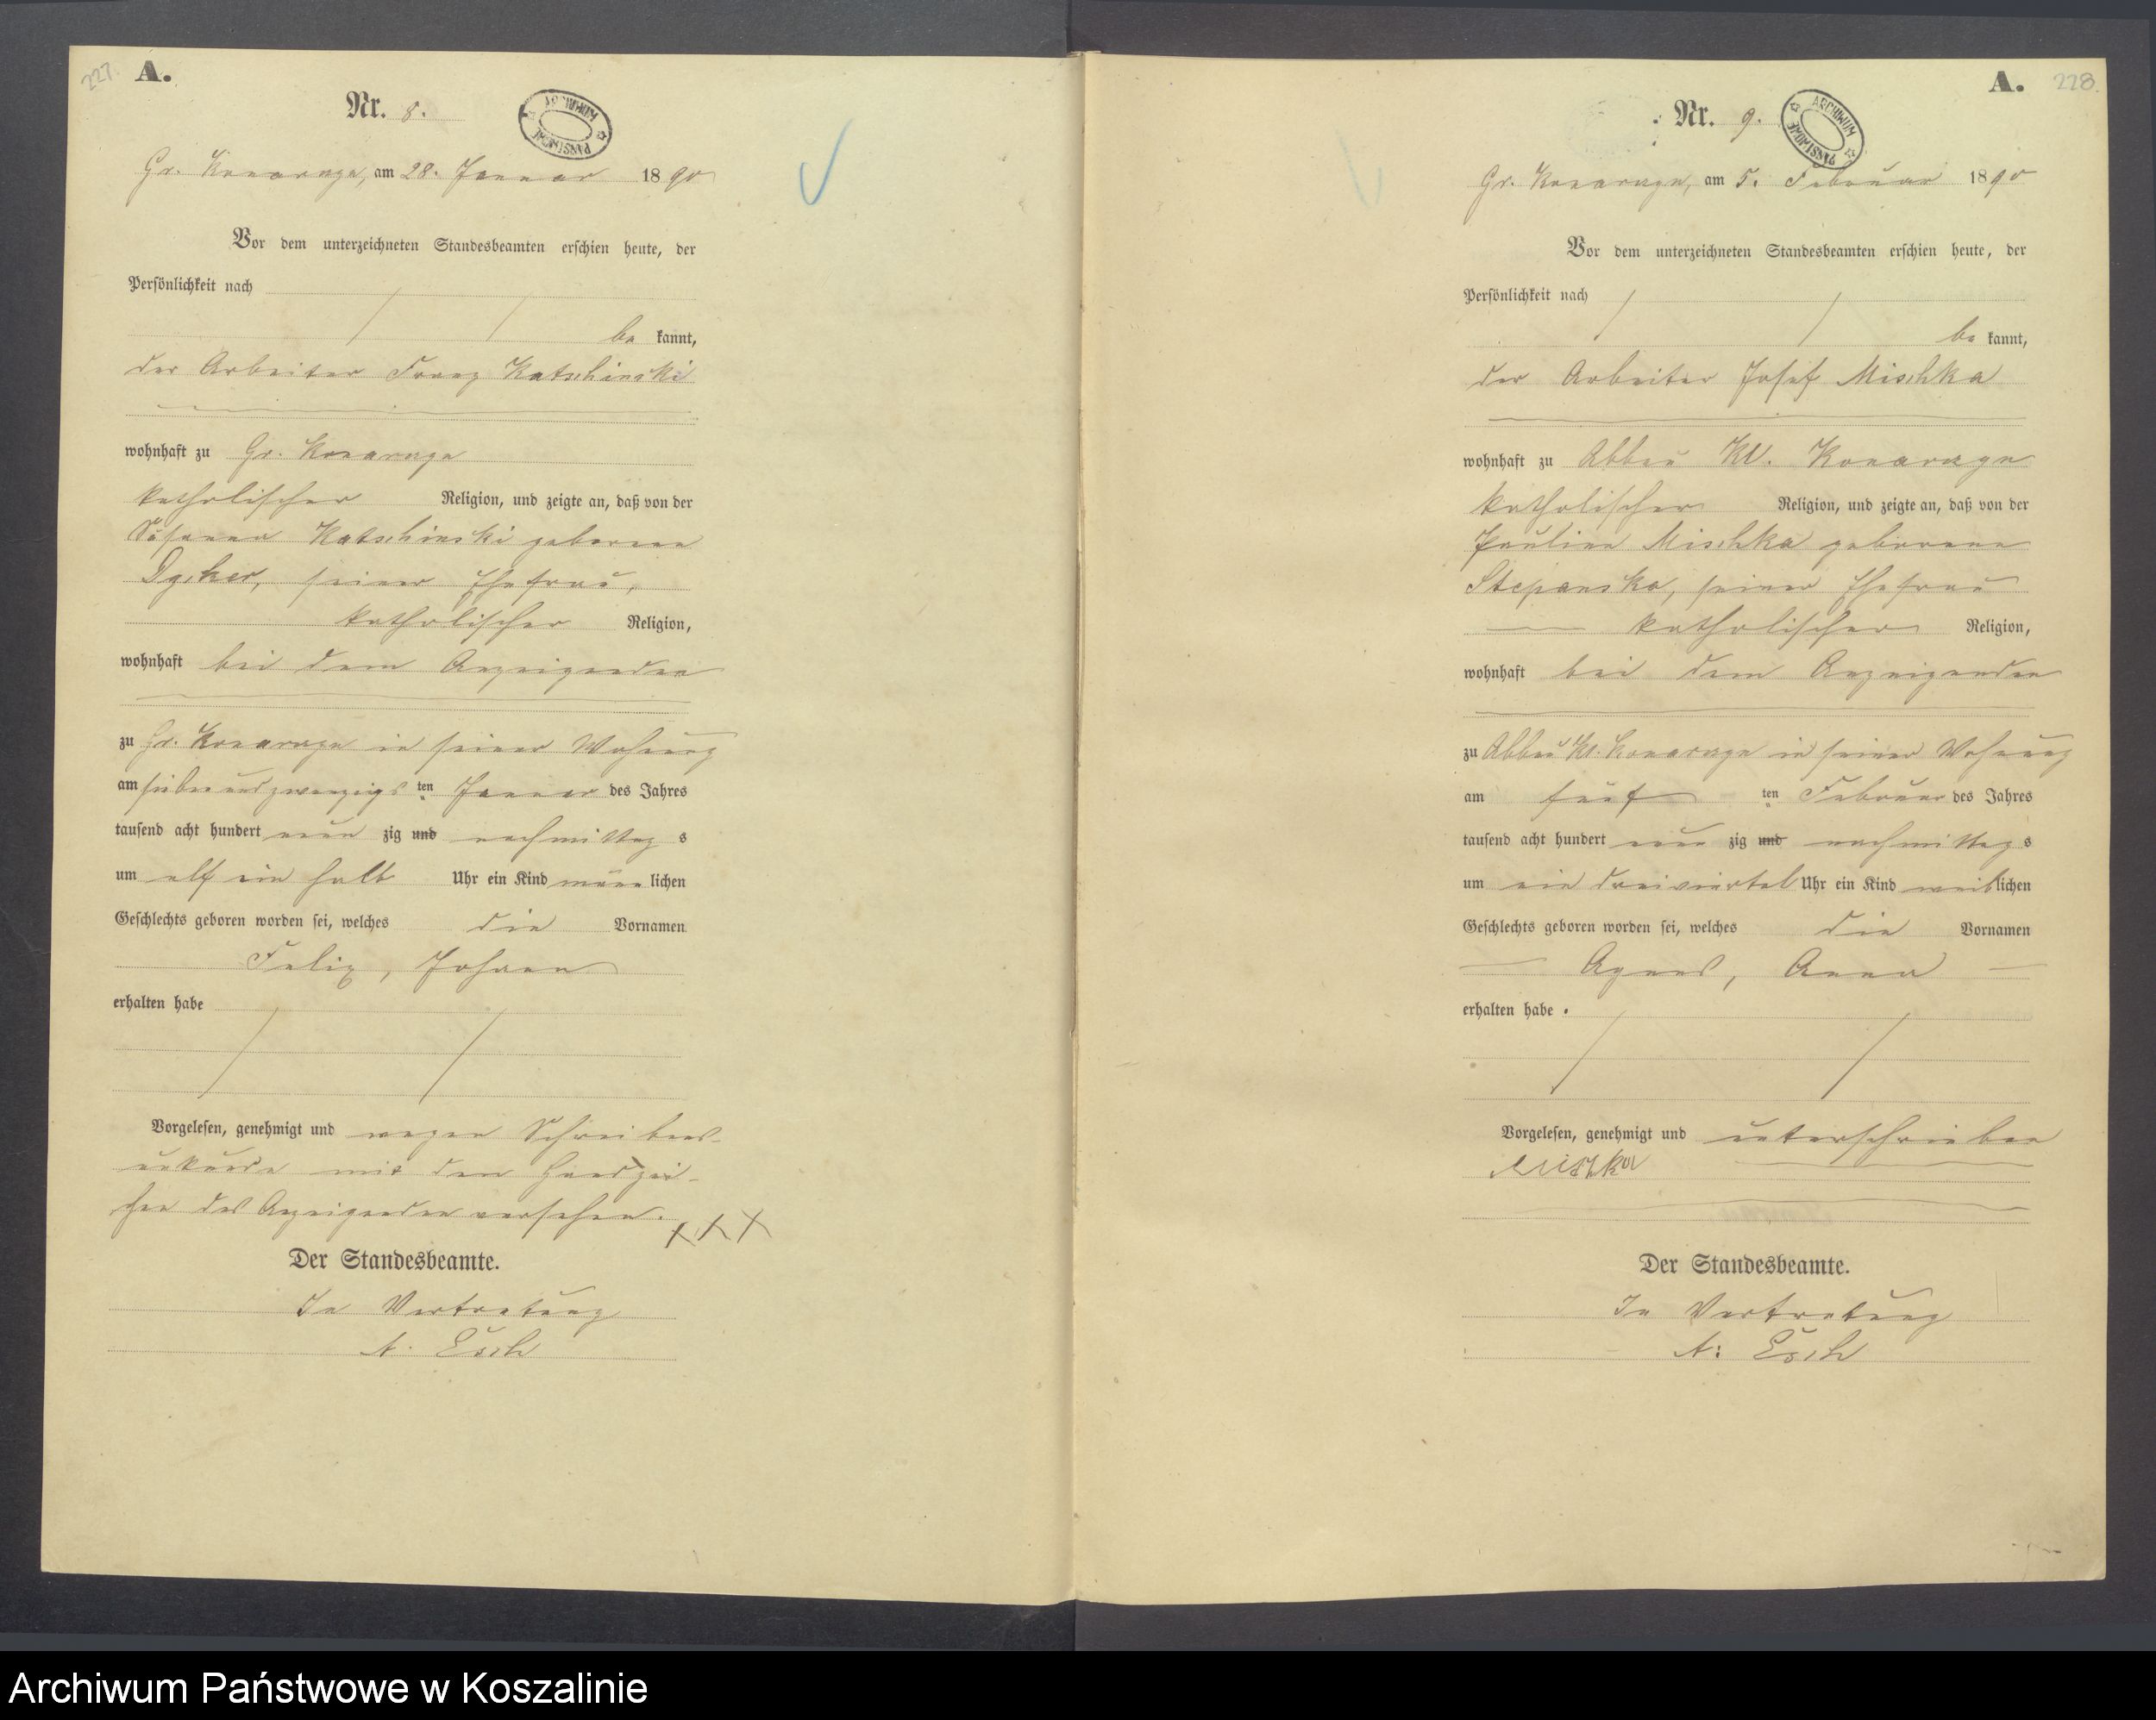 227.
A.
Nr. 8.
ARCHIWUM PAŃSTWOWE
Gr. Konarzyn, am 28. Januar 1890
Vor dem unterzeichneten Standesbeamten erschien heute, der
Persönlichkeit nach
be kannt,
der Arbeiter Franz Katschinski
wohnhaft zu Gr. Konarzyn
katholischer Religion, und zeigte an, daß von der
Susanna Katschinski geborene
seiner Ehefrau,
katholischer Religion,
wohnhaft bei dem Anzeigenden
zu Gr. Konarzyn in seiner Wohnung
am siebenundzwanzigsten Januar des Jahres
tausend acht hundert neun zig und nachmittag s
um elf ein halb Uhr ein Kind männlichen
Geschlechts geboren worden sei, welches die Vornamen
Felix, Johann
erhalten habe
Vorgelesen, genehmigt und wegen Schreibens-
unkunde mit den Handzei-
chen des Anzeigenden versehen. XXX
Der Standesbeamte.
In Vertretung
A. Esch
A. 228.
Nr. 9.
ARCHIWUM PAŃSTWOWE
Gr. Konarzyn, am 5. Februar 1890
Vor dem unterzeichneten Standesbeamten erschien heute, der
Persönlichkeit nach
be kannt,
der Arbeiter Josef Mischka
wohnhaft zu Abbau Kl. Konarzyn
katholischer Religion, und zeigte an, daß von der
Pauline Mischka geborene
Stepanska, seiner Ehefrau
katholischer Religion,
wohnhaft bei dem Anzeigenden
zu Abbau Kl. Konarzyn in seiner Wohnung
am fünf ten Februar des Jahres
tausend acht hundert neun zig und nachmittag s
um ein dreiviertel Uhr ein Kind weiblichen
Geschlechts geboren worden sei, welches die Vornamen
Agnes, Anna
erhalten habe.
Vorgelesen, genehmigt und unterschrieben
Mischka
Der Standesbeamte.
In Vertretung
A. Esch
Archiwum Państwowe w Koszalinie